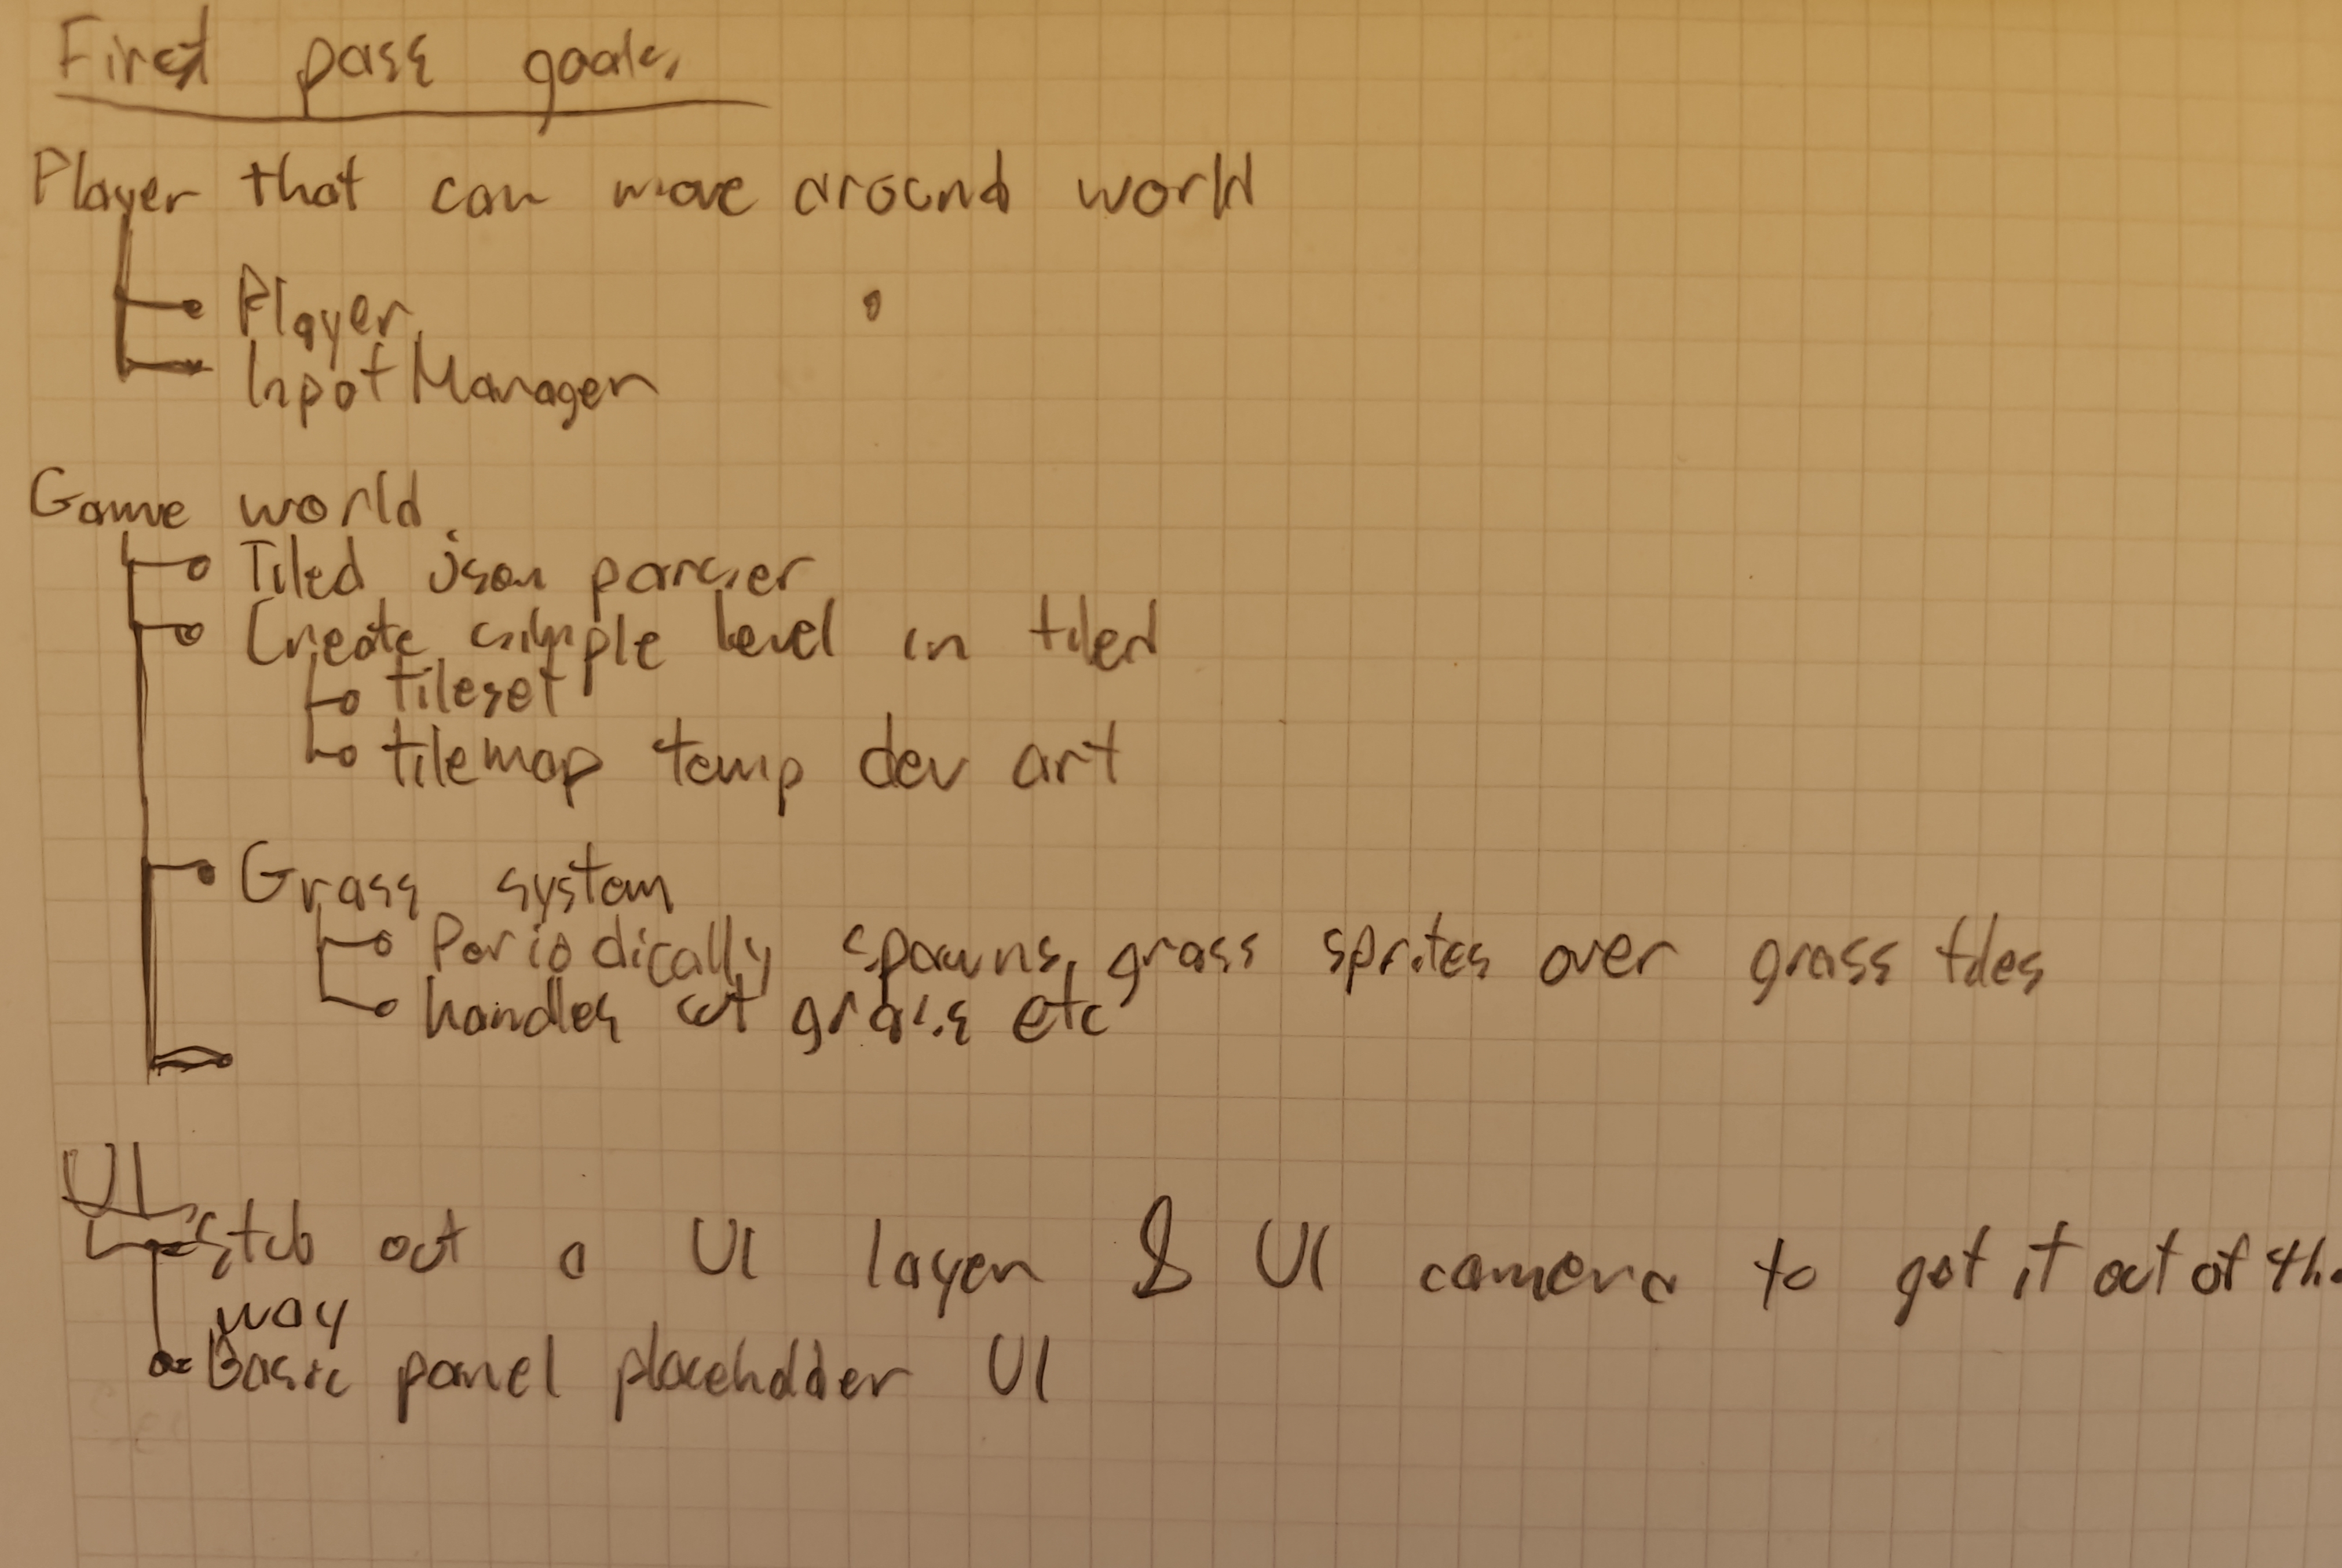 First pass goals
Player that can move around world
Player
Input Manager
Game world
Tiled json parser
Create simple level in tiled
tileset
tilemap temp dev art
Grass system
Periodically spawns grass sprites over grass tiles
handles cut grass etc
UI
Stub out a UI layer & UI camera to get it out of the
way
Basic panel placeholder UI